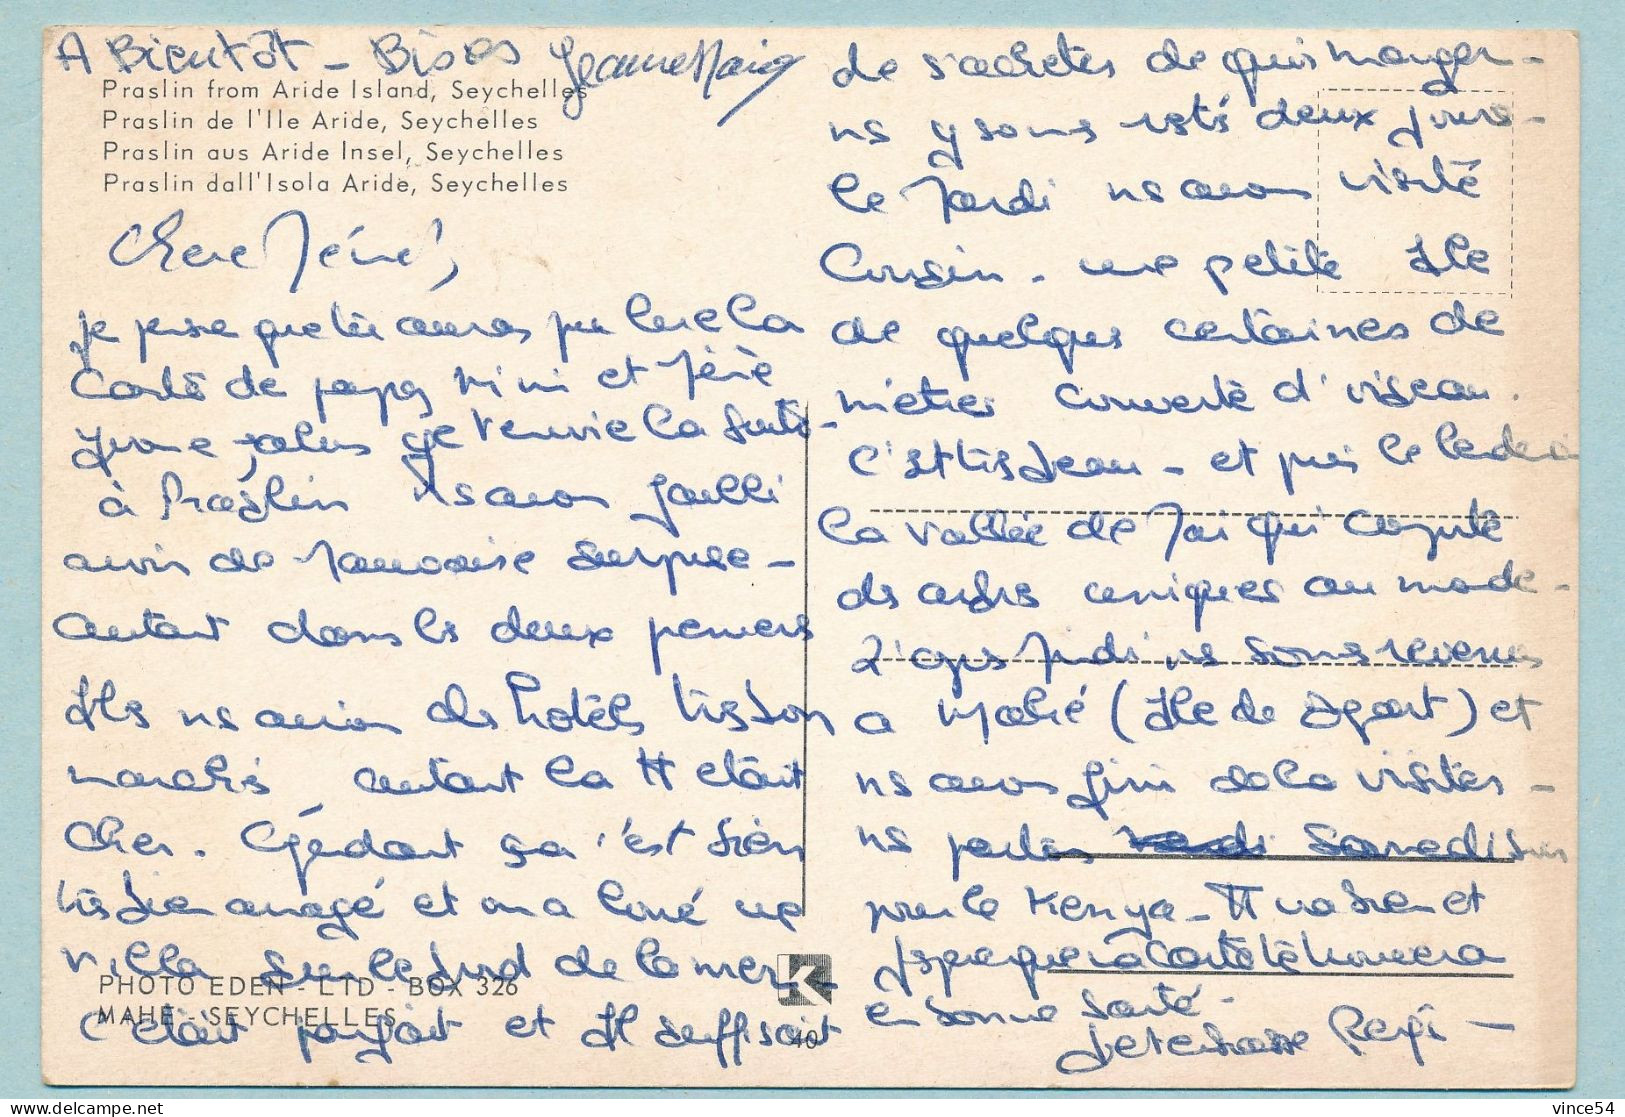 A Bientôt - Bises Jeanne Marie
Praslin from Aride Island, Seychelles
Praslin de l'Ile Aride, Seychelles
Praslin aus Aride Insel, Seychelles
Praslin dall'Isola Aride, Seychelles
Chere
je pense que tu auras pu lire la
Carte de papa Mimi et
je t'envoie la suite -
à Praslin ns avons failli
avoir de mauvaise surprise -
autant dans les deux premiers
Iles ns avions des hôtels très bon
marchés, autant la tt était
cher. Cependant ça s'est bien
très bien arrangé et on a loué une
villa sur le bord de la mer -
c'était parfait et Il suffisait
de s'acheter de quoi manger -
ns y sommes restés deux jours -
le Mardi ns avons visité
Cousin - une petite Ile
de quelques centaines de
mètres couverte d'oiseaux.
C'est très beau - et puis le lendemain
la vallée de Mai qui compte
des arbres uniques au monde -
Jeudi ns sommes revenus
a Mahé (Ile de Départ) et
ns avons fini de la visiter -
ns partons Samedi
pour le Kenya - Tt va bien et
J'espère que ma carte te trouvera
en bonne santé -
Je t'embrasse
PHOTO EDEN - LTD - BOX 326
MAHE - SEYCHELLES
K
40
vince54